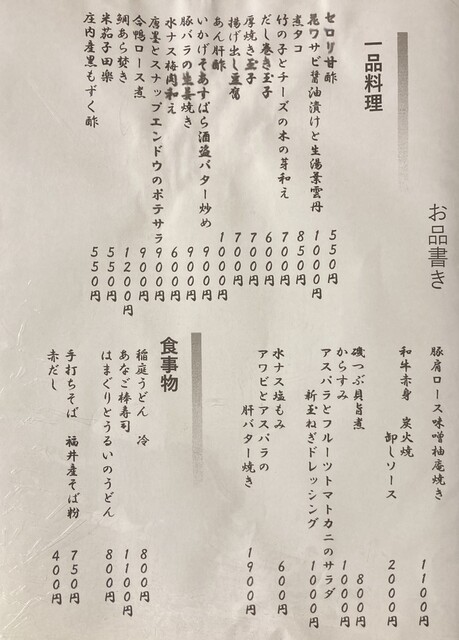 お品書き
一品料理
セロリ甘酢 550円
花ワサビ醤油漬けと生湯葉雲丹 1000円
煮タコ 850円
竹の子とチーズの木の芽和え 700円
だし巻き玉子 600円
厚焼き玉子 700円
揚げ出し豆腐 700円
あん肝酢 1000円
いかげそあすぱら酒盗バター炒め 900円
豚バラの生姜焼き 900円
水ナス梅肉和え 600円
唐墨とスナップエンドウのポテサラ 900円
合鴨ロース煮 900円
鯛あら焚き 1200円
米茄子田楽 550円
庄内産黒もずく酢 550円
豚肩ロース味噌柚庵焼き 1100円
和牛赤身 炭火焼
卸しソース 2000円
磯つぶ貝旨煮 800円
からすみ 1000円
アスパラとフルーツトマトカニのサラダ
新玉ねぎドレッシング 1000円
水ナス塩もみ 600円
アワビとアスパラの
肝バター焼き 1900円
食事物
稲庭うどん 冷 800円
あなご棒寿司 1100円
はまぐりとうるいのうどん 800円
手打ちそば 福井産そば粉 750円
赤だし 400円